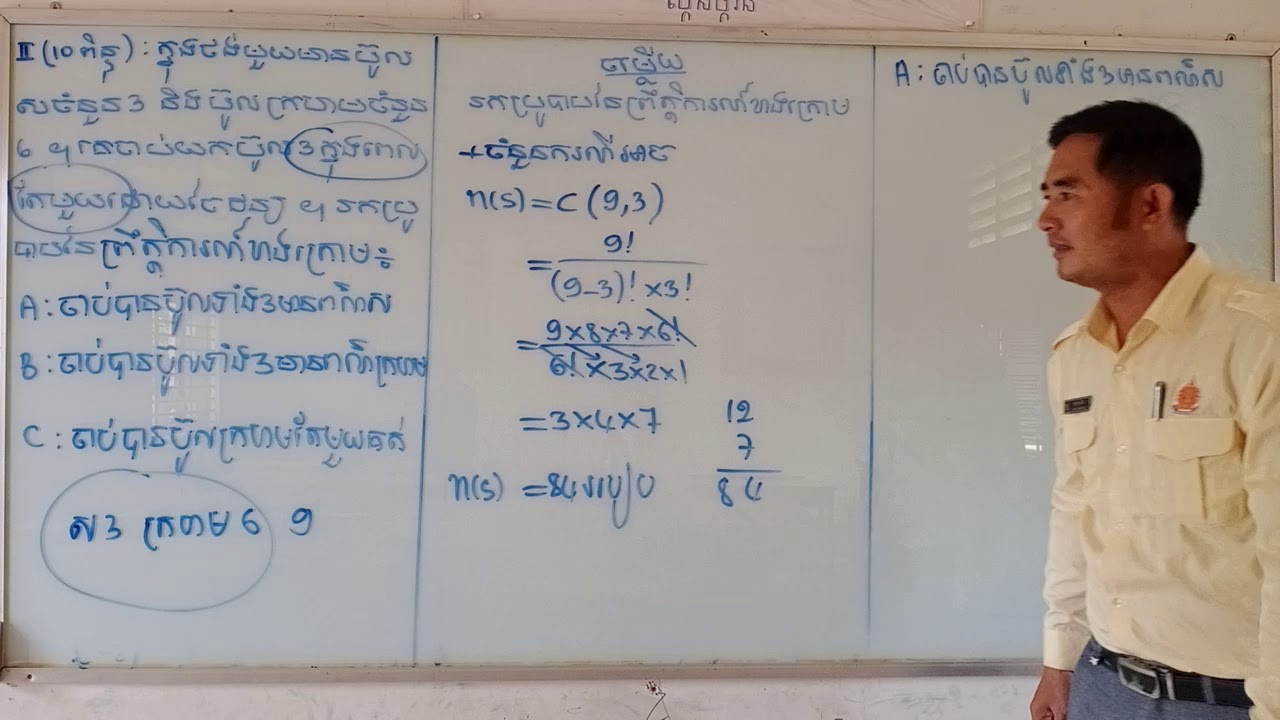 II (10 ពិន្ទុ) : ក្នុងថង់មួយមានប៊ូល
សចំនួន 3 និងប៊ូលក្រហមចំនួន
6 ។ គេចាប់យកប៊ូល 3 ក្នុងពេល
តែមួយដោយចៃដន្យ ។ រកប្រូ
បាបនៃព្រឹត្តិការណ៍ខាងក្រោម ៖
A : ចាប់បានប៊ូលទាំង 3 មានពណ៌ស
B : ចាប់បានប៊ូលទាំង 3 មានពណ៌ក្រហម
C : ចាប់បានប៊ូលក្រហមតែមួយគត់
ស 3 ក្រហម 6 9
ចម្លើយ
រកប្រូបាបនៃព្រឹត្តិការណ៍ខាងក្រោម
+ ចំនួនករណីអាច
n(S) = C (9,3)
= 9! / (9-3)! × 3!
= 9×8×7×6! / 6!×3×2×1
= 3×4×7
12
7
84
n(S) = 84 របៀប
A : ចាប់បានប៊ូលទាំង 3 មានពណ៌ស